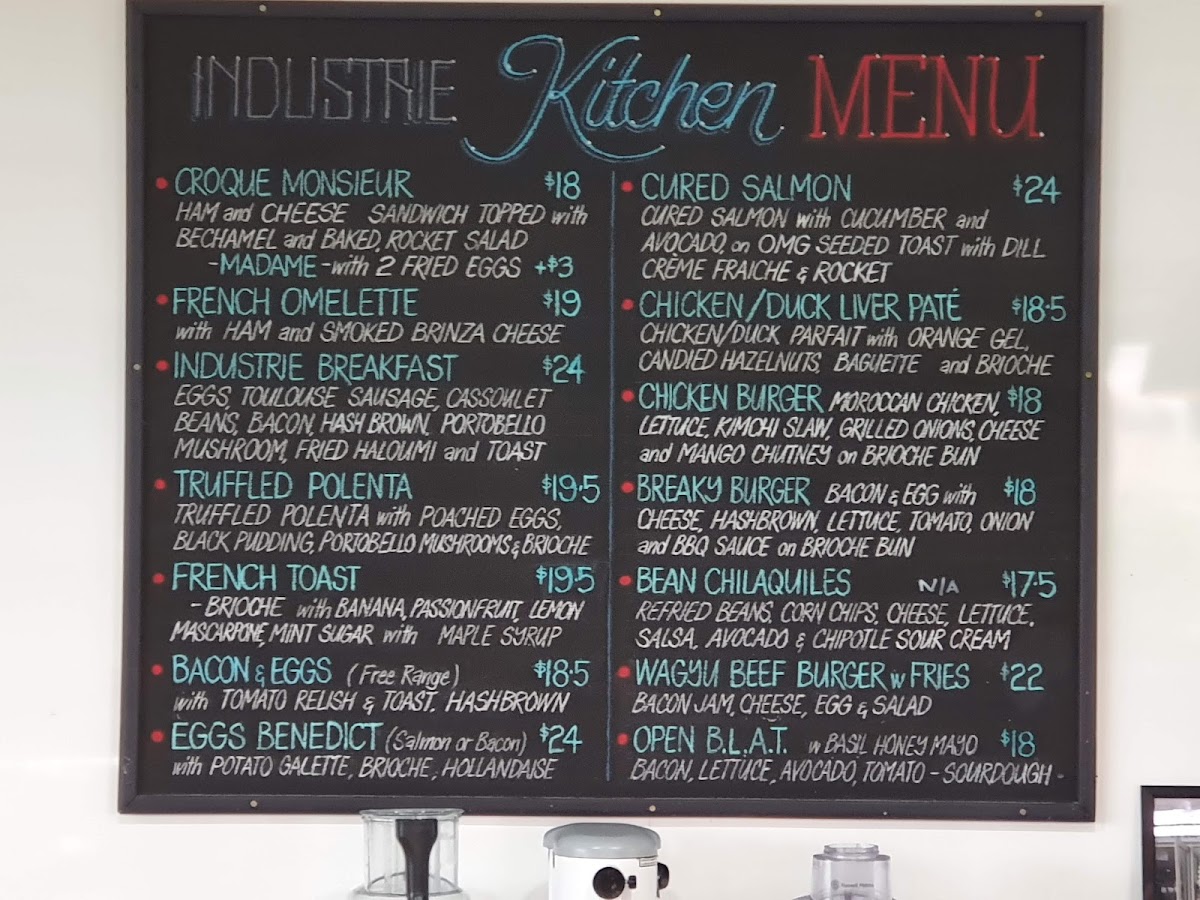 INDUSTRIE Kitchen MENU
CROQUE MONSIEUR $18
HAM and CHEESE SANDWICH TOPPED with
BECHAMEL and BAKED, ROCKET SALAD
-MADAME-with 2 FRIED EGGS +$3
FRENCH OMELETTE $19
with HAM and SMOKED BRINZA CHEESE
INDUSTRIE BREAKFAST $24
EGGS, TOULOUSE SAUSAGE, CASSOULET
BEANS, BACON, HASH BROWN, PORTOBELLO
MUSHROOM, FRIED HALOUMI and TOAST
TRUFFLED POLENTA $19.5
TRUFFLED POLENTA with POACHED EGGS,
BLACK PUDDING, PORTOBELLO MUSHROOMS & BRIOCHE
FRENCH TOAST $19.5
- BRIOCHE with BANANA, PASSIONFRUIT, LEMON
MASCARPONE, MINT SUGAR with MAPLE SYRUP
BACON & EGGS (Free Range) $18.5
with TOMATO RELISH & TOAST, HASHBROWN
EGGS BENEDICT (Salmon or Bacon) $24
with POTATO GALETTE, BRIOCHE, HOLLANDAISE
CURED SALMON $24
CURED SALMON with CUCUMBER and
AVOCADO, on OMG SEEDED TOAST with DILL
CRÈME FRAICHE & ROCKET
CHICKEN/DUCK LIVER PATÉ $18.5
CHICKEN/DUCK PARFAIT with ORANGE GEL,
CANDIED HAZELNUTS, BAGUETTE and BRIOCHE
CHICKEN BURGER MOROCCAN CHICKEN, $18
LETTUCE, KIMCHI SLAW, GRILLED ONIONS, CHEESE
and MANGO CHUTNEY on BRIOCHE BUN
BREAKY BURGER BACON & EGG with $18
CHEESE, HASHBROWN, LETTUCE, TOMATO, ONION
and BBQ SAUCE on BRIOCHE BUN
BEAN CHILAQUILES N/A $17.5
REFRIED BEANS, CORN CHIPS, CHEESE, LETTUCE,
SALSA, AVOCADO & CHIPOTLE SOUR CREAM
WAGYU BEEF BURGER w FRIES $22
BACON JAM, CHEESE, EGG & SALAD
OPEN B.L.A.T. w BASIL HONEY MAYO $18
BACON, LETTUCE, AVOCADO, TOMATO - SOURDOUGH
Russell Hobbs